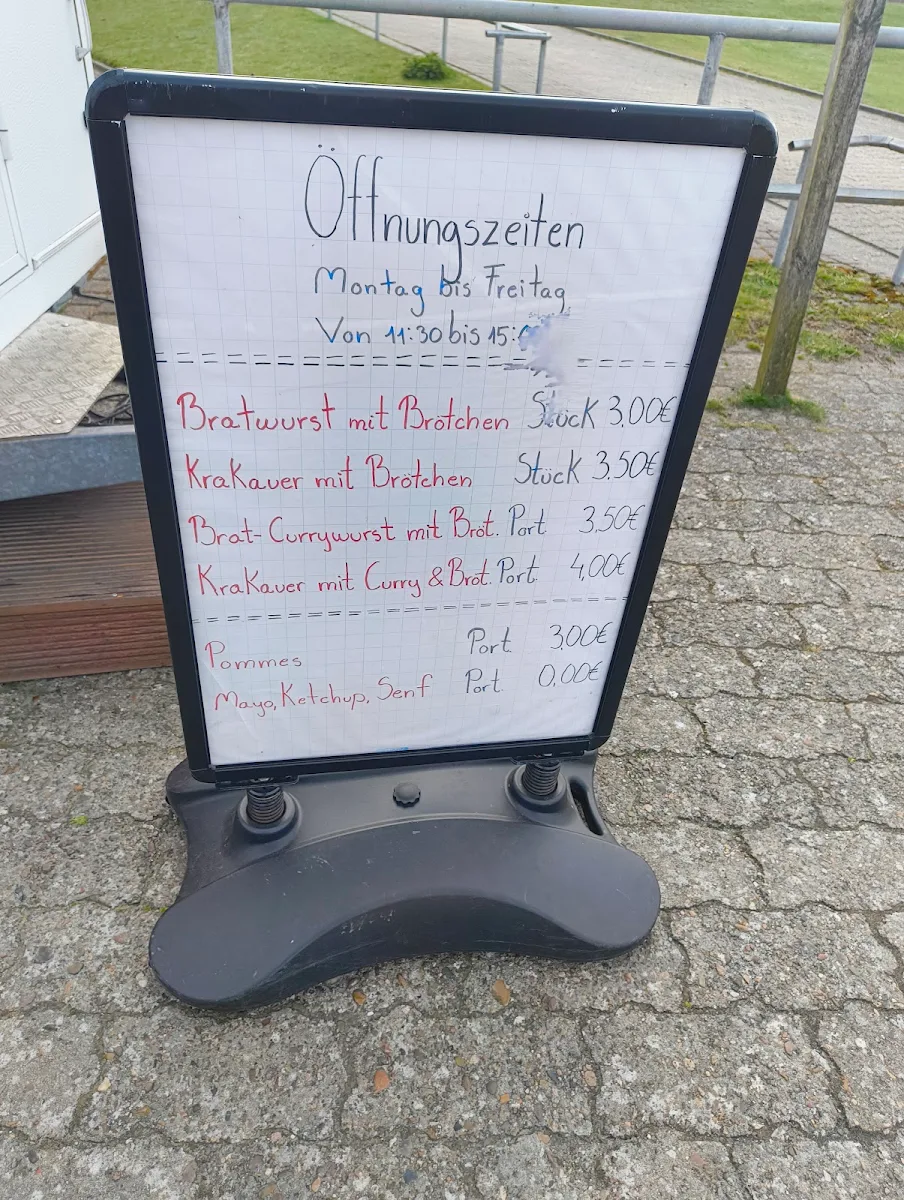 Öffnungszeiten
Montag bis Freitag
Von 11:30 bis 15:
Bratwurst mit Brötchen Stück 3.00€
Krakauer mit Brötchen Stück 3.50€
Brat-Currywurst mit Bröt. Port 3,50€
Krakauer mit Curry & Bröt. Port. 4,00€
Pommes Port. 3,00€
Mayo, Ketchup, Senf Port. 0.00€